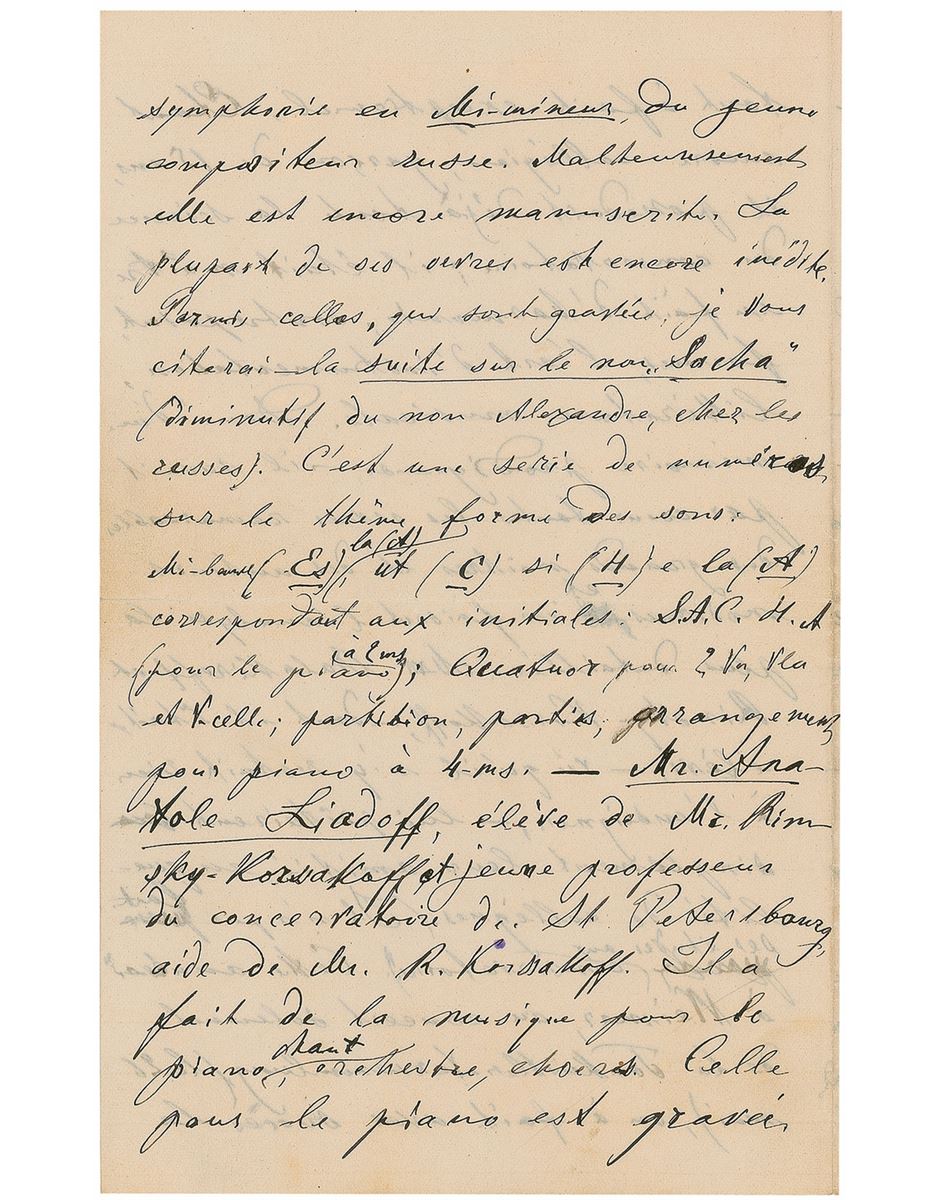 symphonie en Mi-mineur, du jeune
compositeur russe. Malheureusement
elle est encore manuscrite. La
plupart de ses œuvres est encore inédite.
Parmis celles, qui sont gravées, je Vous
citerai—la suite sur le nom „Sacha"
(diminutif du nom Alexandre, chez les
russes). C'est une serie de numéros
sur le thême formé des sons:
Mi-bemol (Es), la (A) ut (C) si (H) e la (A)
correspondant aux initiales: S.A.C.H.A
(pour le piano à 2 ms); Quatuor pour 2 Vn, Vla
et V-celle; partition, parties, arrangement
pour piano à 4-ms. — Mr. Ana-
tole Liadoff, élève de Mr. Rim-
sky-Korsakoff et jeune professeur
du concervatoire de St Petersbourg,
aide de Mr. R. Korsakoff. Il a
fait de la musique pour le
piano, chant, orchestre, choers. Celle
pour le piano est gravée